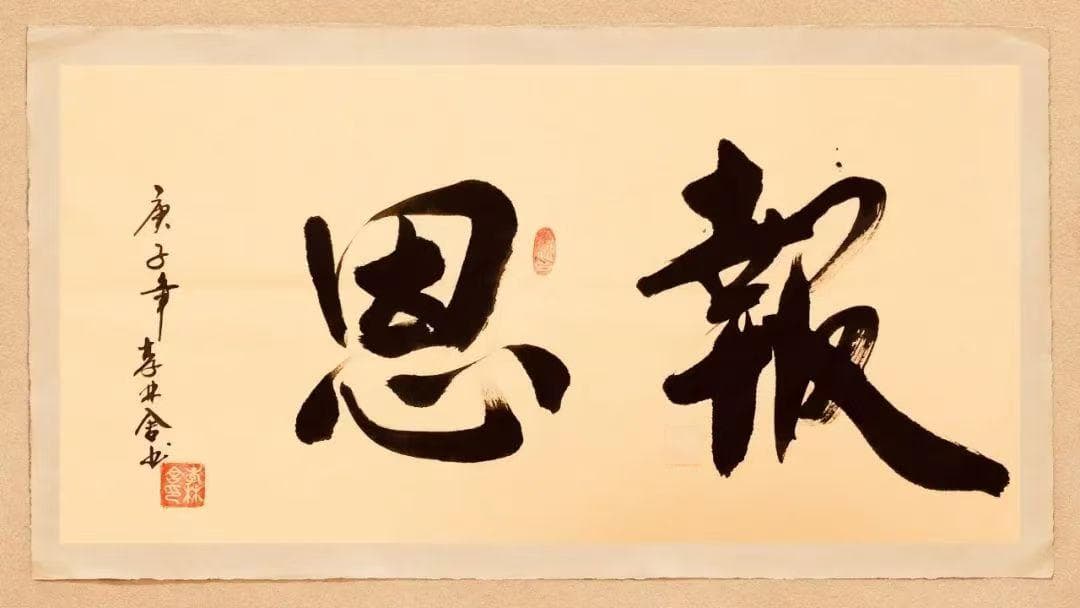 報恩
庚子年李林书